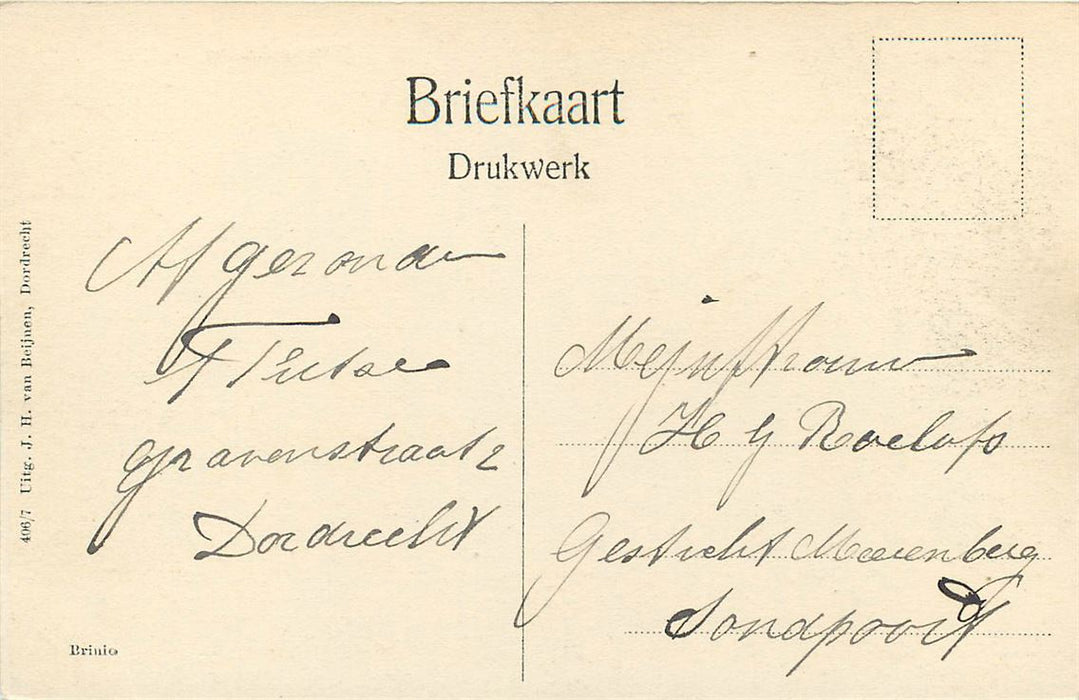 Briefkaart
Drukwerk
Afgezonden
Gravenstraat 2
Dordrecht
Mejuffrouw
H G Roelofs
Gesticht Meerenberg
Sandpoort
406/7 Uitg. J. H. van Beijnen, Dordrecht
Brinio